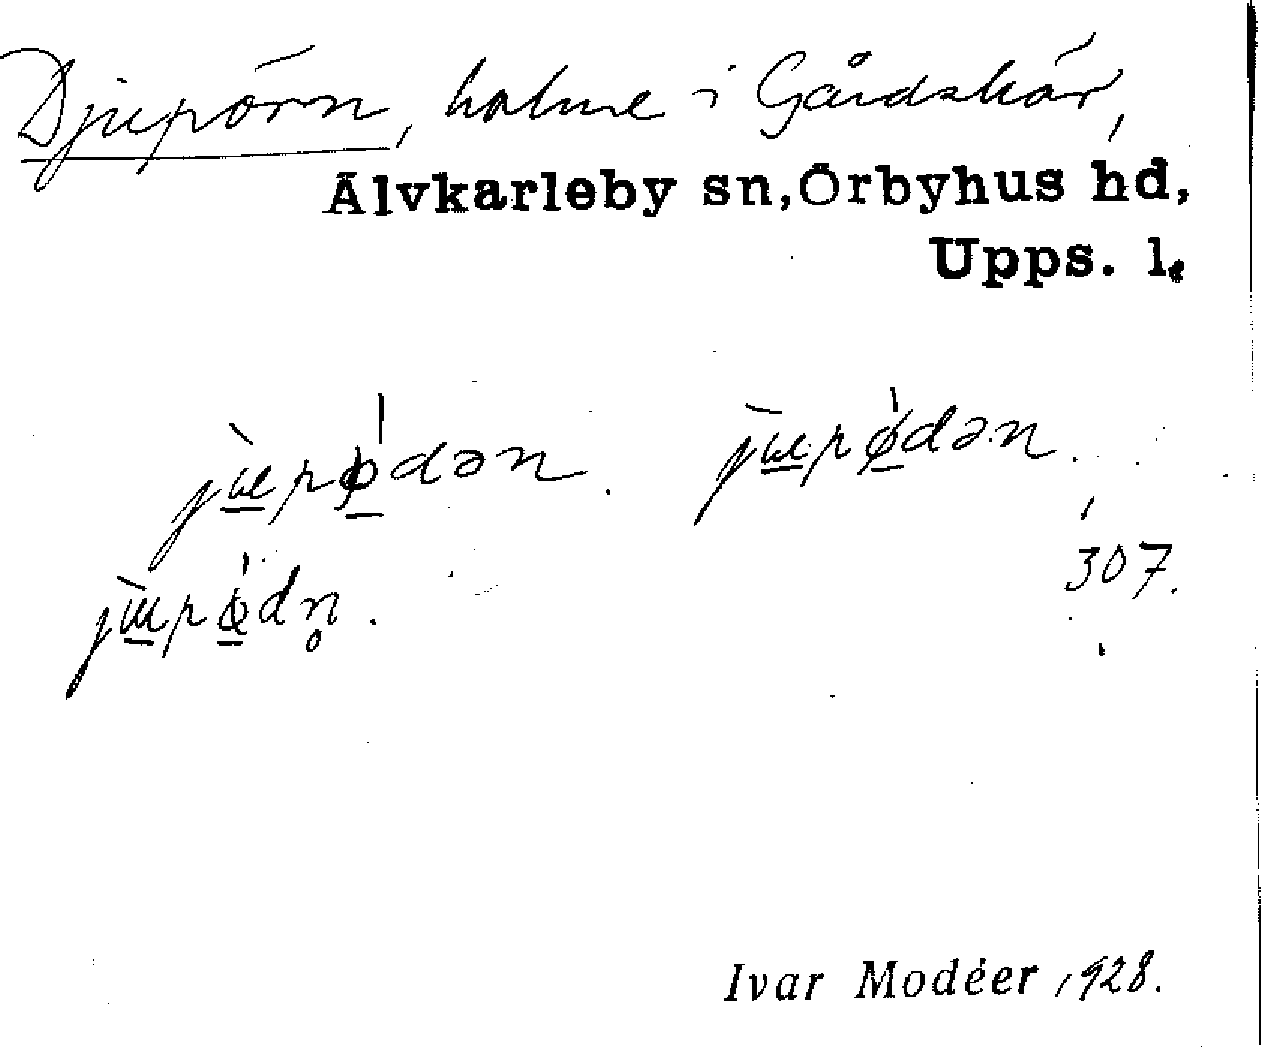 Djupörn, holme i Gårdskär,
Älvkarleby sn, Örbyhus hd,
Upps. l.
jùpø̍dən. jùpø̍dən.
jùpø̍dn̥. 307.
Ivar Modéer 1928.